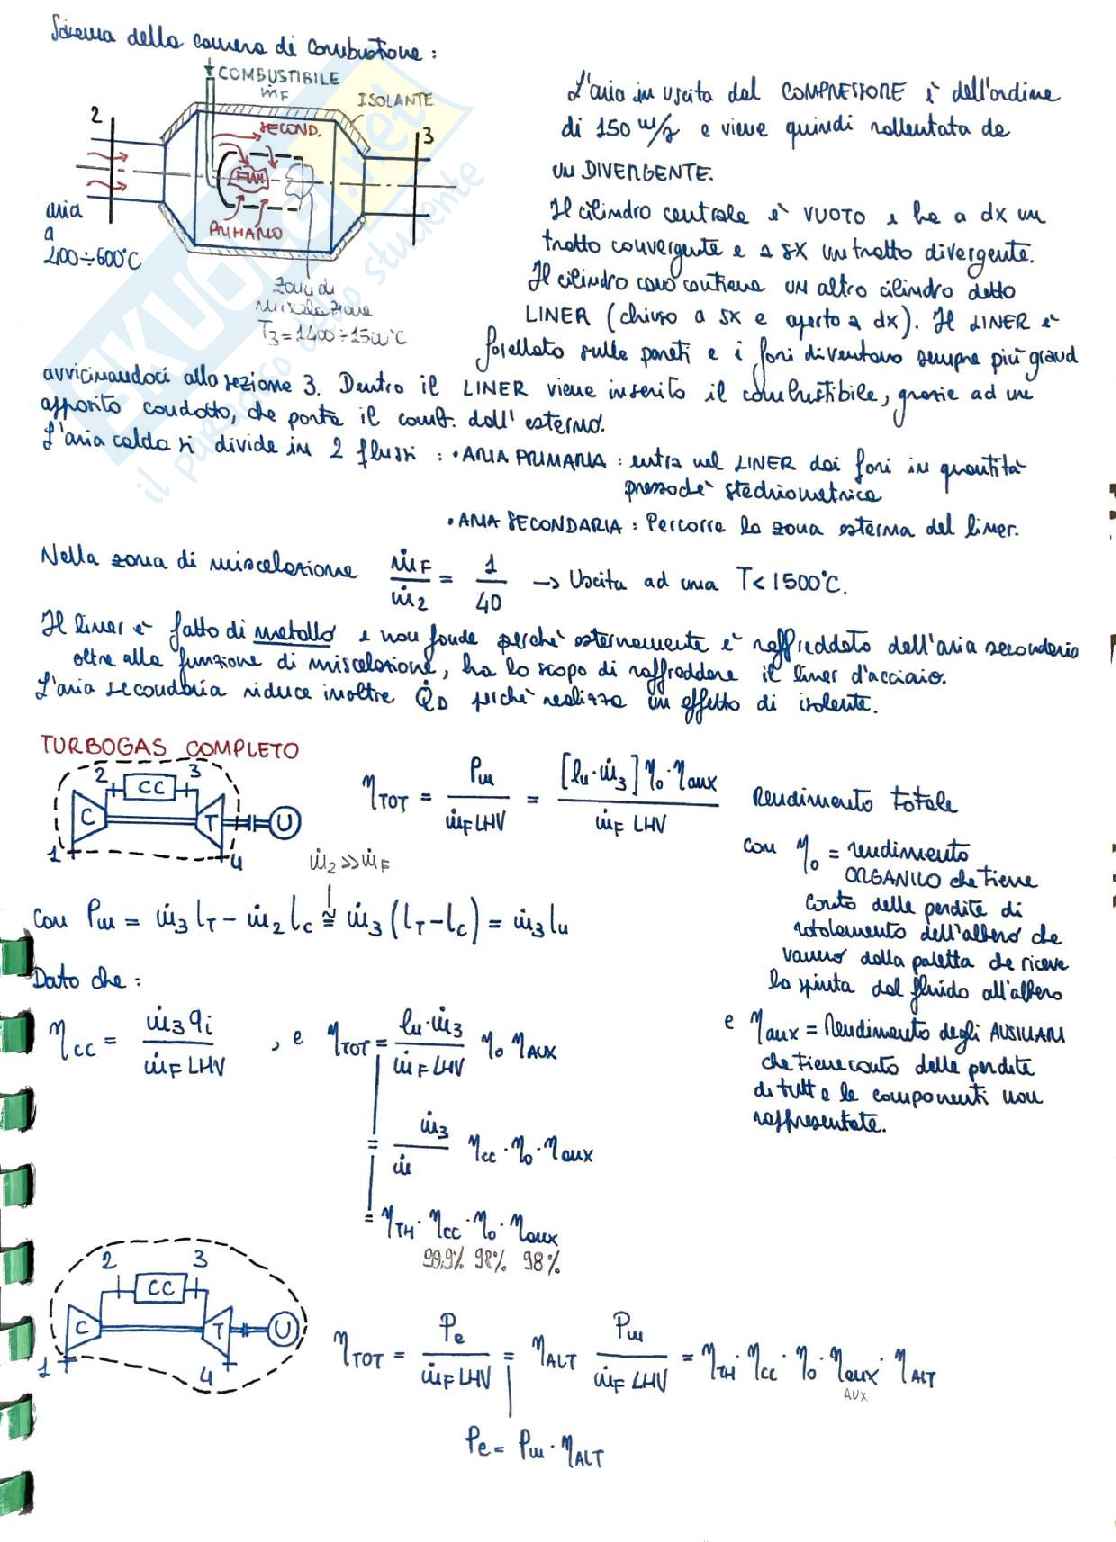 Schema della camera di combustione :
COMBUSTIBILE
ṁF
ISOLANTE
SECOND.
2
3
FIAM
PRIMARIO
aria
a
400÷600°C
Zona di
miscelazione
T3 = 1400÷1500°C
L'aria in uscita dal COMPRESSORE è dell'ordine
di 150 m/s e viene quindi rallentata da
un DIVERGENTE.
Il cilindro centrale è VUOTO e ha a dx un
tratto convergente e a sx un tratto divergente.
Il cilindro cavo contiene un altro cilindro detto
LINER (chiuso a sx e aperto a dx). Il LINER è
forellato sulle pareti e i fori diventano sempre più grandi
avvicinandoci alla sezione 3. Dentro il LINER viene inserito il combustibile, grazie ad un
apposito condotto, che porta il comb. dall'esterno.
L'aria calda si divide in 2 flussi : • ARIA PRIMARIA : entra nel LINER dai fori in quantità
pressoché stechiometrica
• ARIA SECONDARIA : Percorre la zona esterna del liner.
Nella zona di miscelazione ṁF/ṁ2 = 1/40 → Uscita ad una T<1500°C.
Il liner è fatto di metallo e non fonde perché esternamente è raffreddato dall'aria secondaria
oltre alla funzione di miscelazione, ha lo scopo di raffreddare il liner d'acciaio.
L'aria secondaria riduce inoltre Q̇D perché realizza un effetto di isolante.
TURBOGAS COMPLETO
2 3
CC
C T U
1 4
ηTOT = Pm/(ṁF LHV) = ([lu·ṁ3] ηo·ηaux)/(ṁF LHV) Rendimento totale
con ηo = rendimento
ORGANICO che tiene
conto delle perdite di
rotolamento dell'albero che
vanno dalla paletta che riceve
la spinta dal fluido all'albero
ṁ2>>ṁF
con Pm = ṁ3 lT − ṁ2 lC ≅ ṁ3 (lT−lC) = ṁ3 lu
Dato che :
ηCC = ṁ3 qi/(ṁF LHV) , e ηTOT = (lu·ṁ3)/(ṁF LHV) ηo ηAUX
e ηaux = Rendimento degli AUSILIARI
che tiene conto delle perdite
di tutte le componenti non
rappresentate.
= ṁ3/ṁ ηCC·ηo·ηaux
= ηTH·ηCC·ηo·ηaux
99,9% 98% 98%
2 3
CC
C T U
1 4
ηTOT = Pe/(ṁF LHV) = ηALT Pm/(ṁF LHV) = ηTH·ηCC·ηo·ηaux·ηALT
AUX
Pe = Pm·ηALT